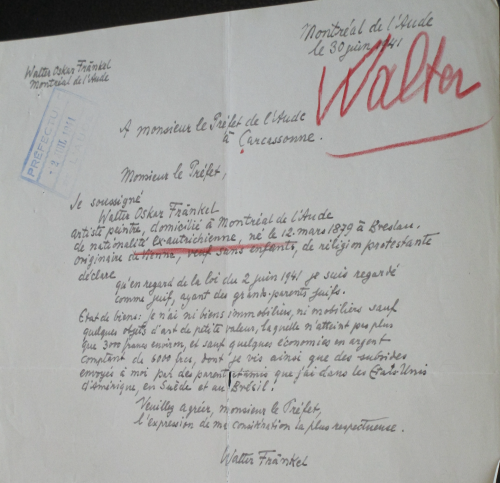 Montréal de l'Aude
le 30 juin 1941
Walter Oskar Fränkel
Montréal de l'Aude
Walter
PRÉFECTU
JUIL 1941
A monsieur le Préfet de l'Aude
à Carcassonne.
Monsieur le Préfet,
Je soussigné
Walter Oskar Fränkel
artiste peintre, domicilié à Montréal de l'Aude
de nationalité ex-autrichienne, né le 12. mars 1879 à Breslau.
originaire de Vienne, veuf sans enfants, de réligion protestante
déclare
qu'en regard de la loi du 2 juin 1941 je suis regardé
comme juif, ayant des grands-parents juifs.
Etat de biens: je n'ai ni biens immobiliers, ni mobiliers sauf
quelques objets d'art de petite valeur, laquelle n'atteint pas plus
que 3000 francs environ, et sauf quelques économies en argent
comptant de 6000 frcs, dont je vis ainsi que des subsides
envoyés à moi par des parents et amis que j'ai dans les Etats-Unis
d'Amérique, en Suède et au Brésil.
Veuillez agréer, monsieur le Préfet,
l'expression de ma considération la plus respectueuse.
Walter Fränkel